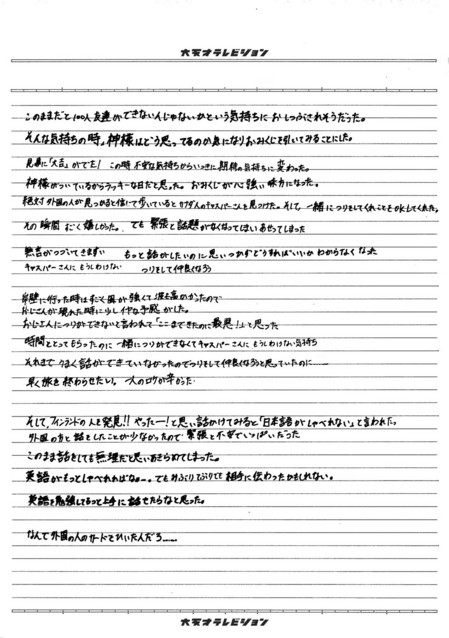 大天才テレビジョン
このままだと100人友達ができない人じゃないかという気持ちにおしつぶされそうだった。
そんな気持ちの時。神様はどう思ってるのか気になりおみくじを引いてみることにした。
見事に「大吉」がでた! この時不安な気持ちからいっきに期待の気持ちに変わった。
神様がついているからラッキーな日だと思った。おみくじが心強い味方になった。
絶対外国の人が見つかると信じて歩いているとカナダ人のキャスパーさんを見つけた。そして一緒につりをしてくれることもOKしてくれた。
その瞬間すごく嬉しかった。でも緊張と話題がなくなってしまいあせってしまった
無言がつづいてきまずい もっと話がしたいのに思いつかずどうすればいいかわからなくなった
キャスパーさんにもうしわけない つりをして仲良くなろう
岸壁に行った時はすごく風が強くて波も高かったので
おじさんが現れた時に少しイヤな予感がした。
おじさんにつりができないと言われて「ここまできたのに最悪!」と思った
時間をとってもらったのに一緒につりができなくてキャスパーさんにもうしわけない気持ち
それまでうまく話ができていなかったのでつりをして仲良くなろうと思っていたのに……
早く旅を終わらせたい。一人のロケが辛かった
そして、フィンランドの人を発見!!やったー!と思い話かけてみると「日本語がしゃべれない」と言われた。
外国の方と話をしたことが少なかったので緊張と不安でいっぱいだった
このまま話をしても無理だと思いあきらめてしまった。
英語がもっとしゃべれればなぁ…。でもみぶりてぶりでも相手に伝わったかもしれない。
英語を勉強してもっと上手に話せたらなと思った。
なんで外国の人のカードでかいたんだろ……
大天才テレビジョン